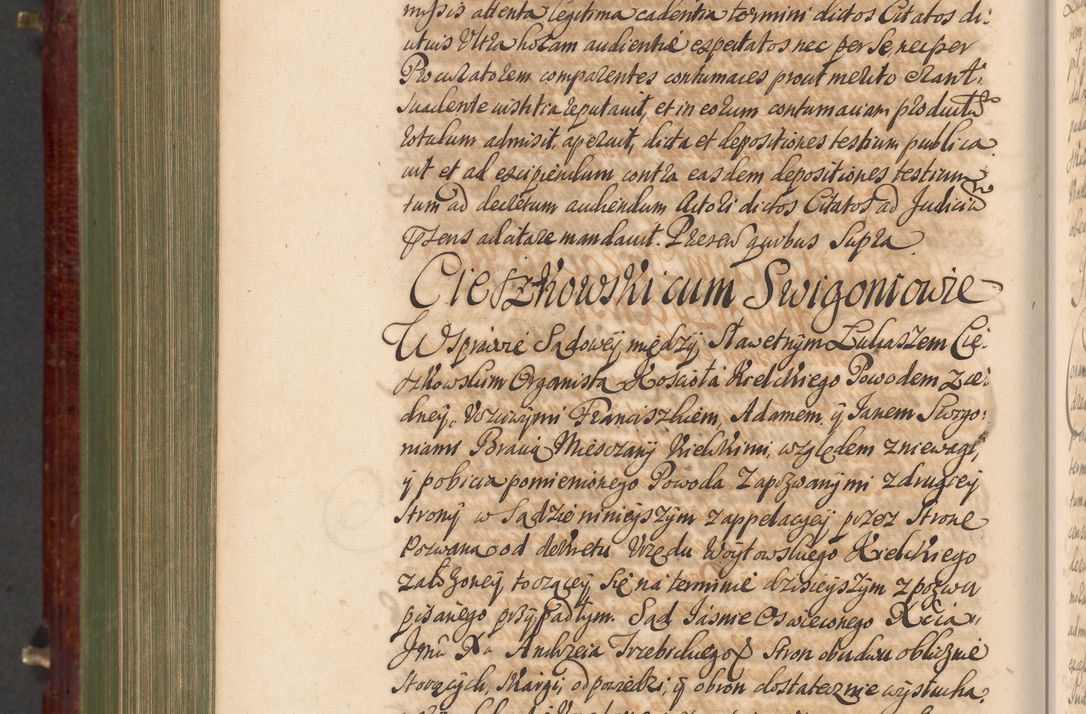 missis attenta legitima cadentia termini dictos Citatos di:
utius Ultra horam audientiæ expectatos nec per Se nec per
Procuratorem comparentes contumaces prout merito erant
suadente iustitia reputauit, et in eorum contumaciam productũ
rotulum admisit, aperuit, dicta et depositiones testium publica
uit et ad excipiendum contra easdem depositiones testium
tum ad decretum audiendum Actori dictos Citatos ad Judiciũ
Pñens adcitare mandauit. Præsen: quibus Supra
Cieszkowski cum Swigoniowie
W Sprawie Sądowey między Sławetnym Łukaszem Cie:
szkowskim Organistą Kościoła Kielckiego Powodem z ie:
dney, Uczciwymi Franciszkiem, Adamem y Janem Swigo:
niami Bracią Miesczany Kielckimi, względem zniewagi,
y pobicia pomienionego Powoda Zapozwanymi z drugiey
Strony w Sądzie ninieyszym z appelacyey przez Stronę
Pozwaną od dekretu Urzędu Woytowskiego Kielckiego
załozoney toczącey się na terminie dzisieyszym z pozwu
pisanego przypadłym. Sąd Jaśnie Oswieconego Xcia
Jmći Xa Andrzeia Trzebickiego Stron obudwu oblicznie
stoiących, skargi, odpowiedzi, y obron dostatecznie wysłucha